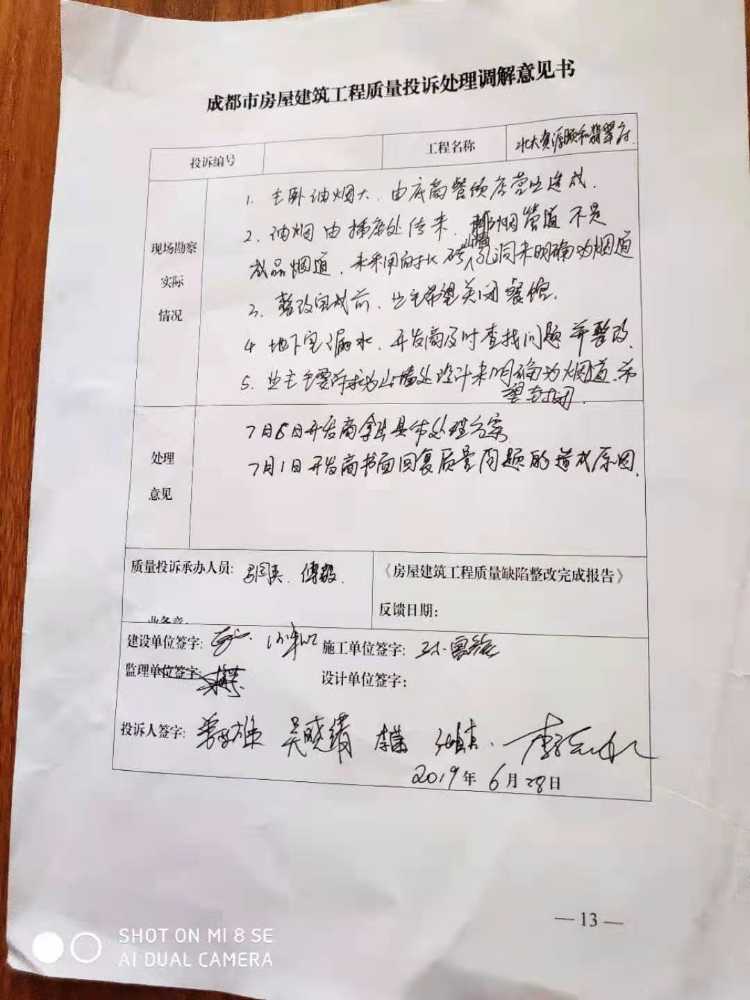 成都市房屋建筑工程质量投诉处理调解意见书
投诉编号 工程名称 北大资源颐和翡翠府
现场勘察
实际
情况
1. 主卧油烟大，由底商餐饮店营业造成.
2、油烟由 处传来，排烟管道不是
成品烟道，未采用 洞未明确为烟道
3、整改完成前，业主希望关闭餐馆.
4 地下室漏水，开发商及时查找问题并整改.
5、业主主要诉求为山墙处设计未明确为烟道.希
望封闭.
处理
意见
7月5日开发商拿出具体处理方案
7月1日开发商书面回复质量问题的造成原因.
质量投诉承办人员: 傅毅
《房屋建筑工程质量缺陷整改完成报告》
反馈日期:
业务章:
建设单位签字: 施工单位签字:
监理单位签字: 设计单位签字:
投诉人签字: 吴晓倩
2019年6月28日
—13—
SHOT ON MI 8 SE
AI DUAL CAMERA